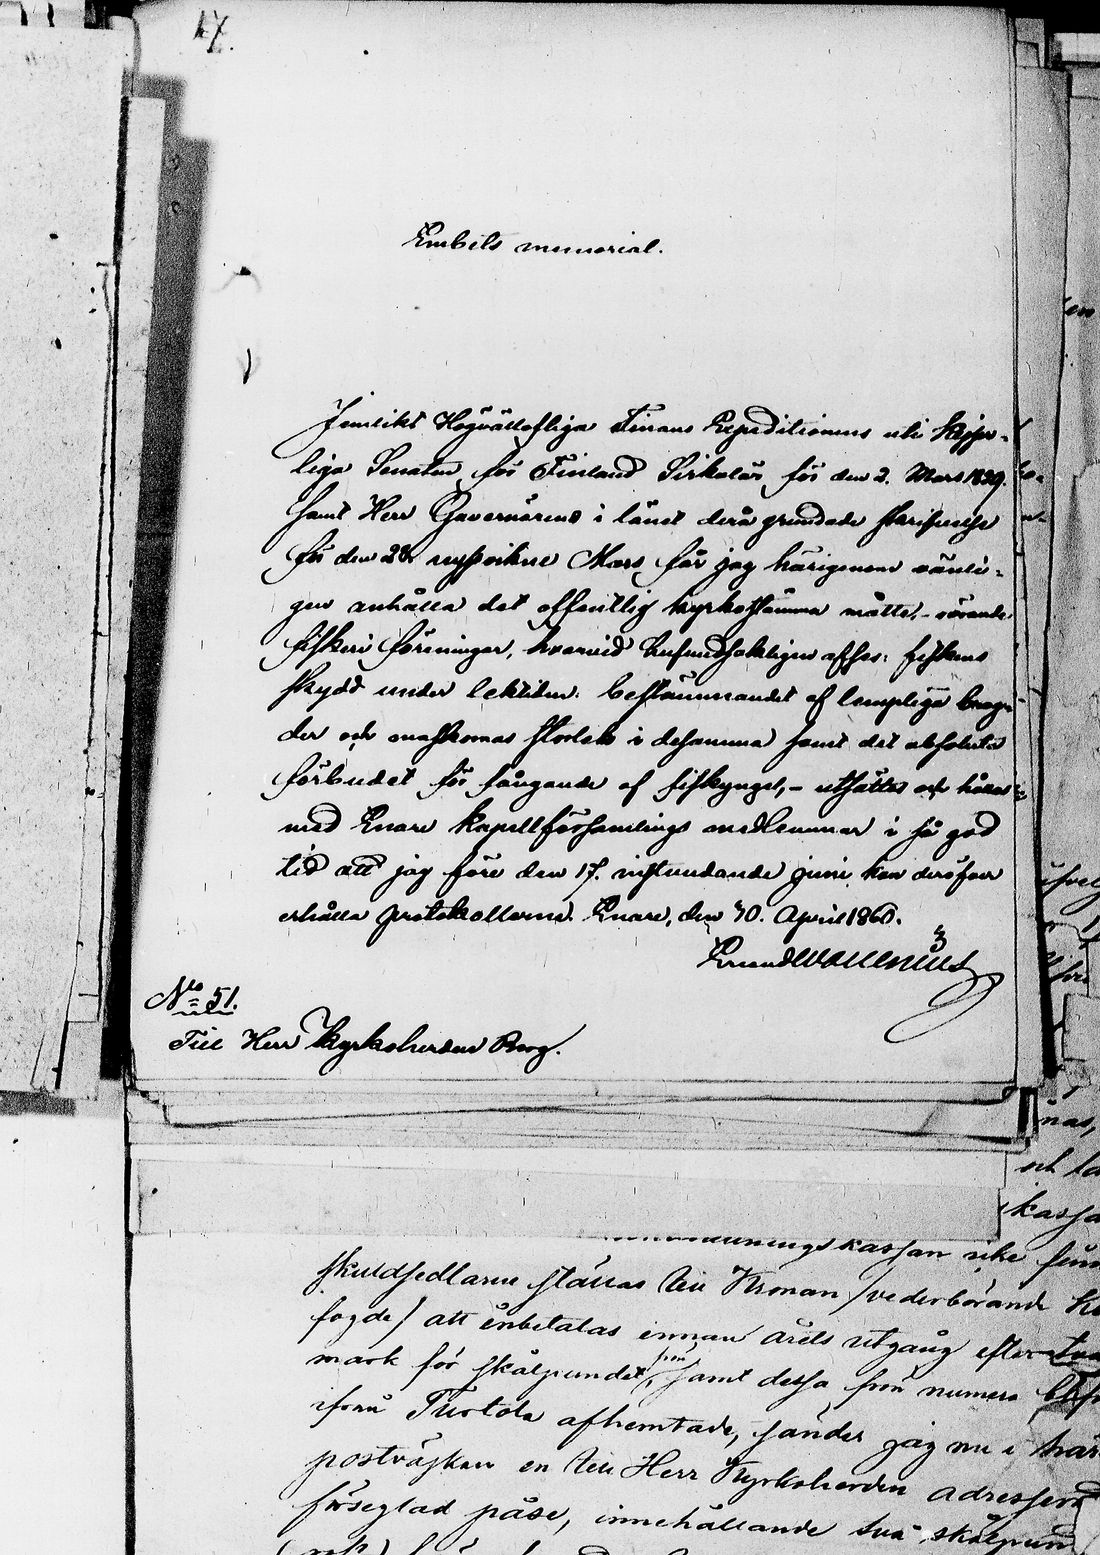 17.
Embets memorial.
Jemlikt Högvällofliga Finans Expeditionens uti Kejser-
liga Senaten för Finland Sirkulär för den 2. Mars 1859.
samt Herr Guvernörens i länet derå grundade skrifvelse
för den 28 nyssvikne Mars får jag härigenom vänli-
gen anhålla det offentlig kyrkostämma måtte, - rörande
fiskeri föreningar, hvarvid hufvudsakligen afses: fiskens
skydd under lektiden: bestämmandet af lempliga brag-
der och maskornas storlek i desamma samt det absoluta
förbudet för fångande af fiskyngel, - utsättas och hållas
med Enare kapellförsamlings medlemmar i så god
tid att jag före den 17. nästundande juni kan deröfver
erhålla protokollerne. Enare, den 30. April 1860.
No 51.
Till Herr Kyrkoherden
kassan icke
skuldsedlarne ställas till Kronan /vederbörande
fogde/ att inbetalas innan årets utgång efter
mark för skålpundet, samt dessa från numero
ifrån Turtola afhemtade, sänder jag nu i
postväskan en till Herr Kyrkoherden adresserad
förseglad påse, innehållande två skålpund